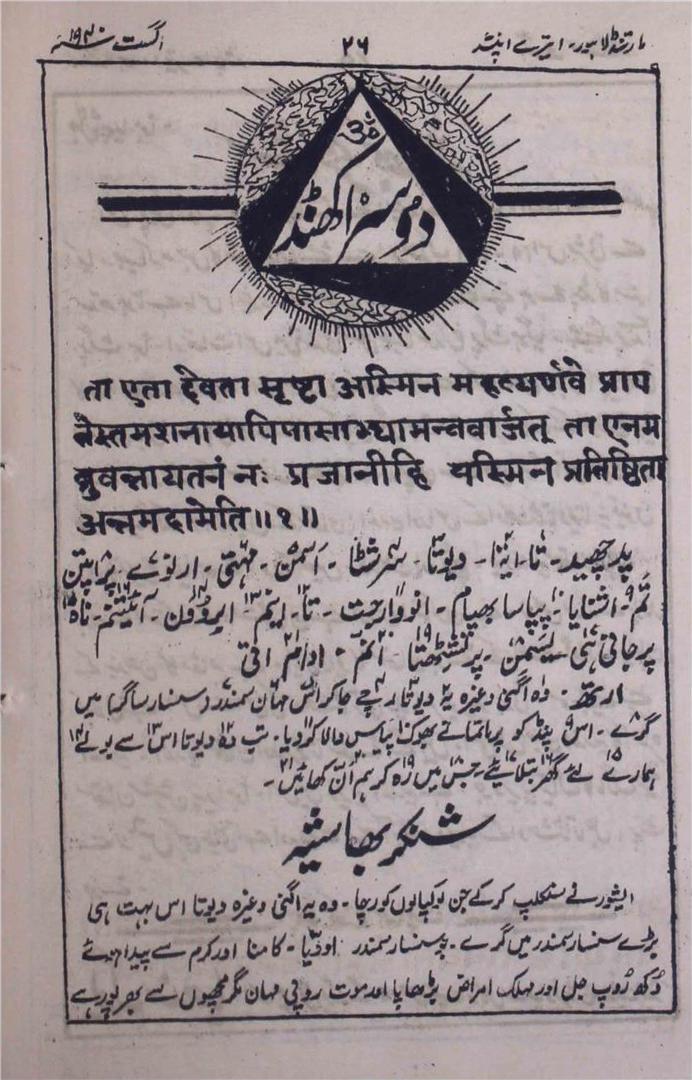 مارتنڈ لاہور۔ ایترے اپنشد
۲۶
اگست ۱۹۴۰ء
ॐ
دوسرا کھنڈ
ता एता देवता सृष्टा अस्मिन महत्यर्णवे प्राप
तंस्तमशनायापिपासाभ्यामन्ववार्जत् ता एनम
ब्रुवन्नायतनं नः प्रजानीहि यस्मिन प्रतिष्ठिता
अन्नमदामेति॥१॥
پدچھید۔ تا۔ ایتا۔ دیوتا۔ سرشٹا۔ اسمن۔ مہتی۔ ارنوے۔ پراپتن
تم۔ اشنایا۔ پپاسا بھیام۔ انووارجت۔ تا۔ اینم۔ ابروون۔ آیتنم۔ ناہ
پرجانی ہی۔ یسمن۔ پرتشٹھتا۔ انم۔ ادام۔ اتی
ارتھ۔ وہ اگنی وغیرہ یہ دیوتا رچے جاکر اس مہان سمندر (سنسار ساگر) میں
گرے۔ اس پنڈ کو پرماتما نے بھوک پیاس والا کردیا۔ تب وہ دیوتا اس سے بولے
ہمارے لئے گھر بتلائیے۔ جس میں رہ کر ہم ان کھائیں۔
شنکر بھاشیہ
ایشور نے سنکلپ کرکے جن لوکپالوں کو رچا۔ وہ یہ اگنی وغیرہ دیوتا اس بہت ہی
بڑے سنسار سمندر میں گرے۔ یہ سنسار سمندر اودیا۔ کامنا اور کرم سے پیدا ہوئے
دکھ روپ جل اور مہلک امراض بڑھاپا اور موت روپی مہان مگرمچھوں سے بھرپور ہے